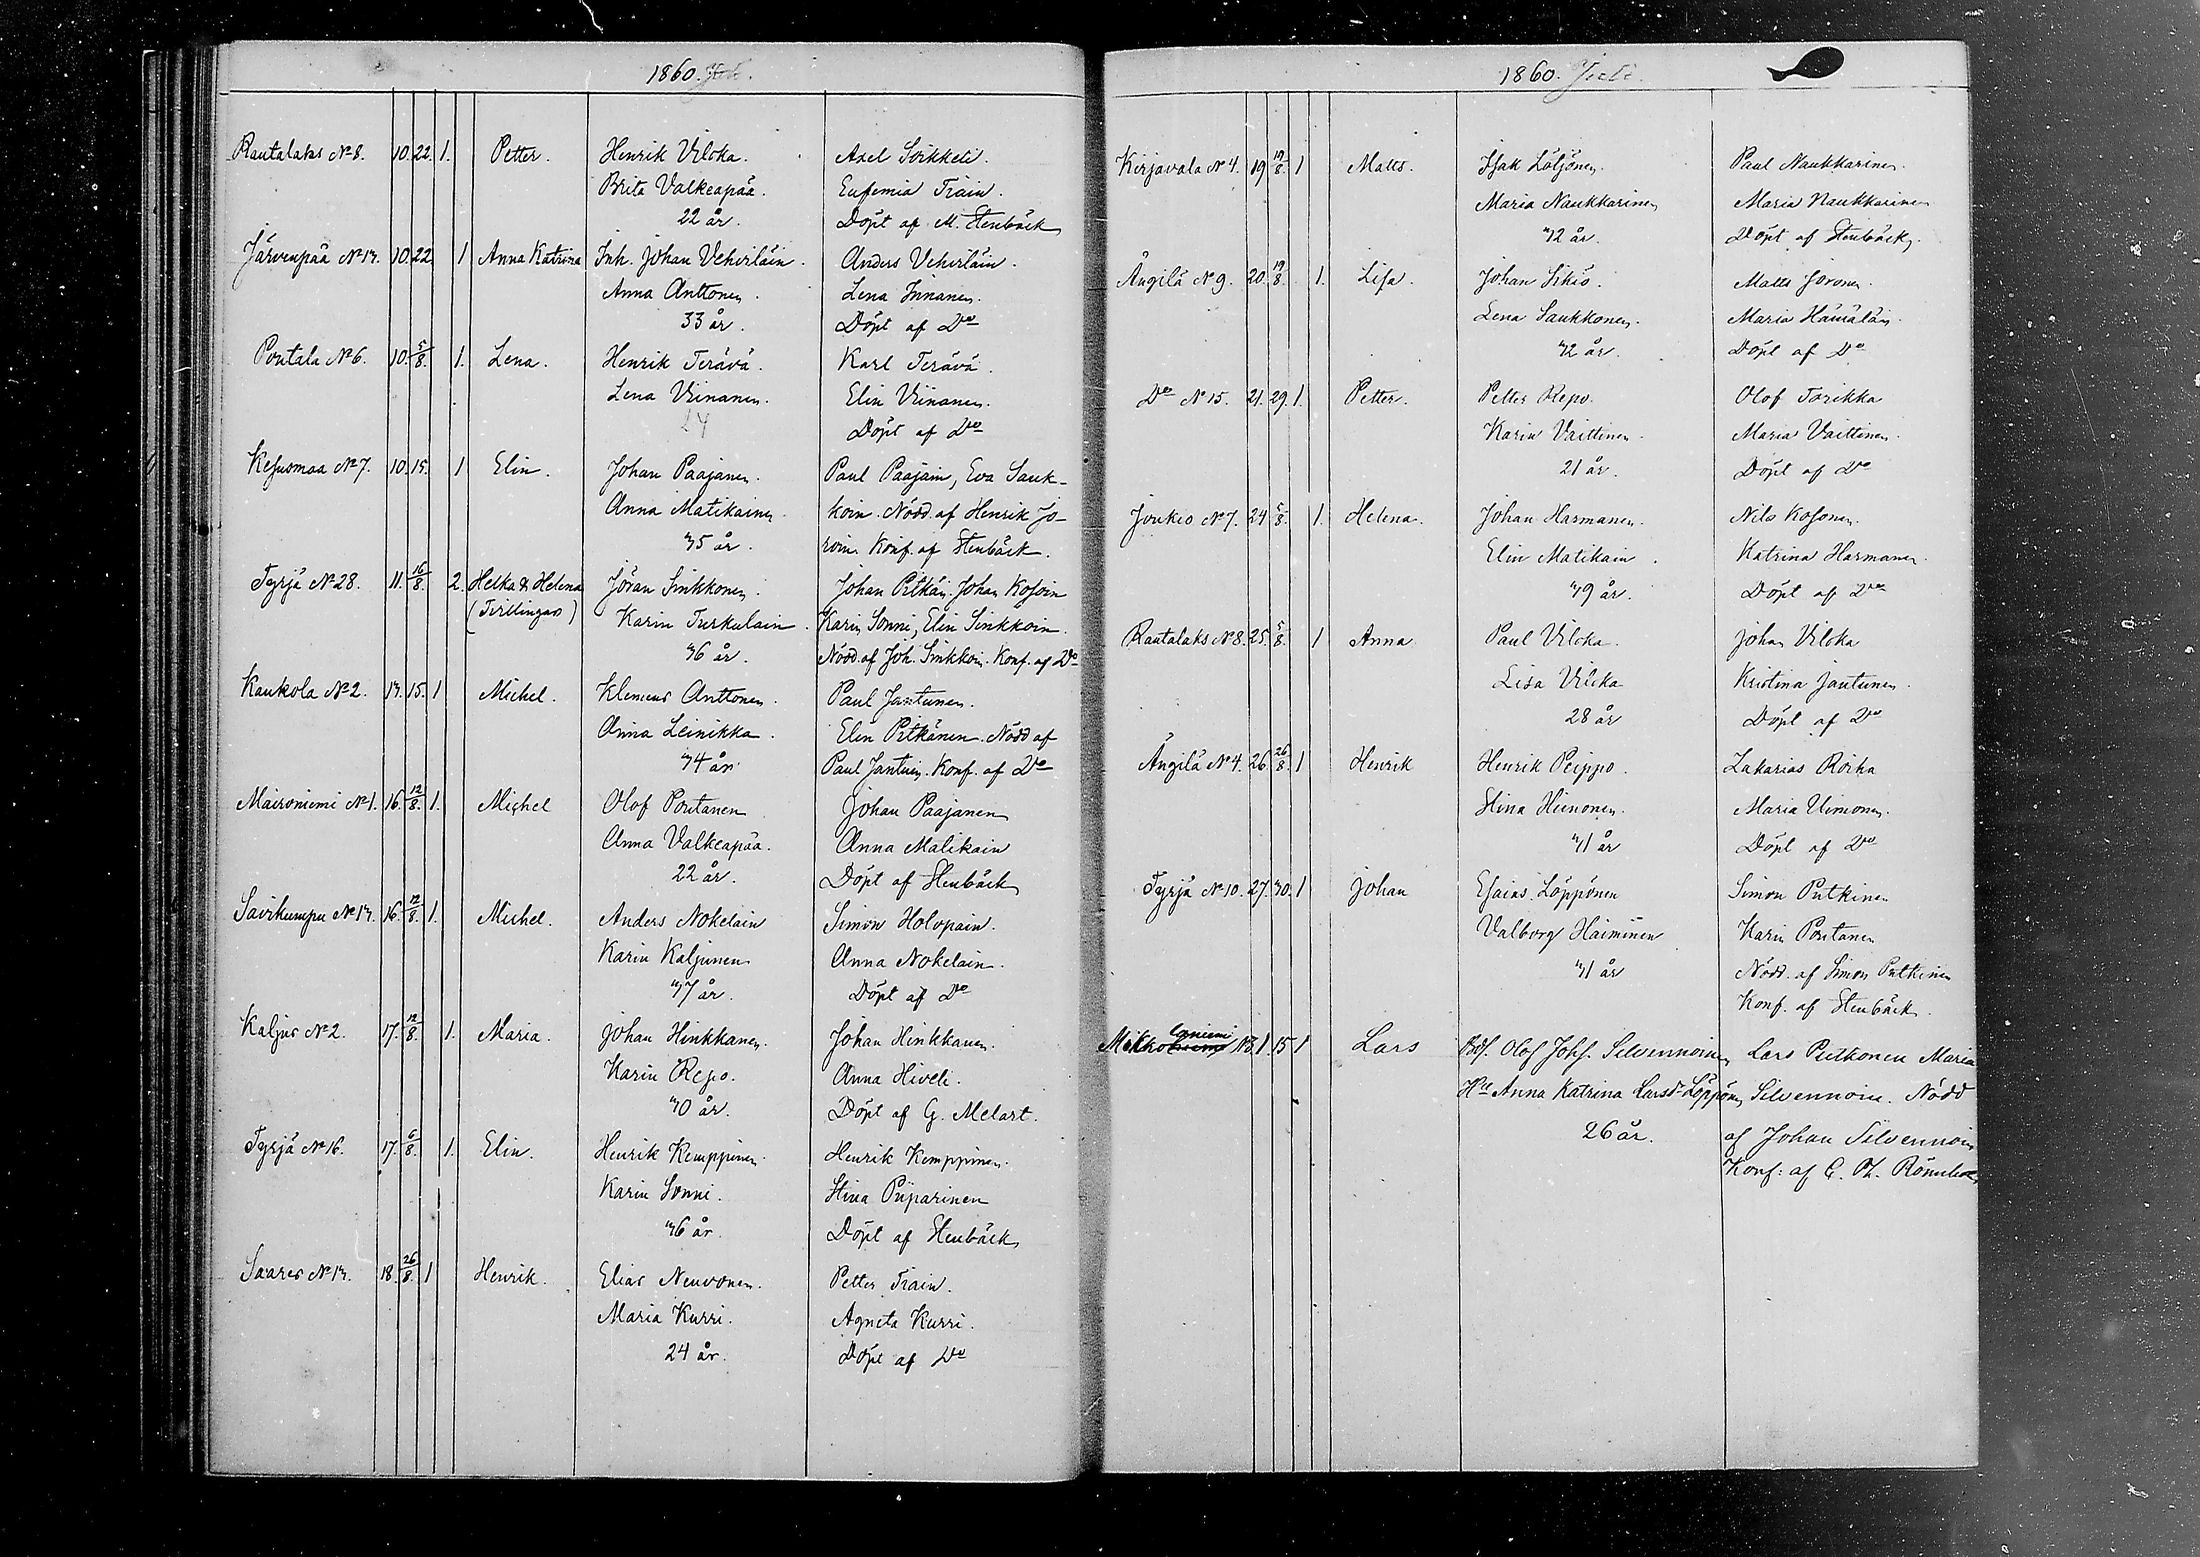 1860.
Rautalaks № 8. 10. 22. 1. Petter. Henrik Vilska. Axel Soikkeli.
Brita Valkeapää. Eufemia Train.
22 år. Döpt af M. Stenbäck
Järvenpää № 13. 10. 22 1 Anna Katrina Inh. Johan Vehviläin. Anders Vehviläin.
Anna Anttonen. Lena Innanen.
33 år. Döpt af Do
Pontala № 6. 10. 5/8. 1. Lena. Henrik Terävä. Karl Terävä.
Lena Viinanen. Elin Viinanen.
24 Döpt af Do
Kesusmaa № 7. 10. 15. 1 Elin. Johan Paajanen. Paul Paajain, Eva Sauk-
Anna Matikainen. koin. Nödd. af Henrik Jo-
35 år. roin. Konf. af Stenbäck.
Tyrjä № 28. 11. 16/8. 2. Helka & Helena Jöran Sinkkonen. Johan Pitkän, Johan Kosoin
(Tvillingar) Karin Turkulain. Karin Sonni, Elin Sinkkoin.
36 år. Nödd. af Joh. Sinkkoin. Konf. af Do
Kaukola № 2. 13. 15. 1 Michel. Klemens Anttonen. Paul Jantunen.
Anna Leinikka. Elin Pitkänen. Nödd af
34 år. Paul Jantuin. Konf. af Do
Maironiemi № 1. 16. 12/8. 1. Michel Olof Pontanen Johan Paajanen
Anna Valkeapää. Anna Matikain
22 år. Döpt af Stenbäck
Savikumpu № 13. 16. 12/8. 1. Michel. Anders Nokelain Simon Holopain.
Karin Kaljunen Anna Nokelain.
37 år. Döpt af Do
Kaljus № 2. 17. 12/8. 1. Maria. Johan Hinkkanen. Johan Hinkkanen.
Karin Repo. Anna Hiveli.
30 år. Döpt af G. Melart.
Tyrjä № 16. 17. 6/8. 1. Elin. Henrik Kemppinen. Henrik Kemppinen.
Karin Sonni. Stina Piiparinen
36 år. Döpt af Stenbäck
Saares № 13. 18. 26/8. 1 Henrik. Elias Neuvonen. Petter Train.
Maria Kurri. Agneta Kurri.
24 år. Döpt af Do
1860. Juli.
Kirjavala № 4. 19 19/8. 1 Matts. Isak Lötjönen. Paul Naukkarinen.
Maria Naukkarinen Maria Naukkarinen
32 år. Döpt af Stenbäck.
Ängilä № 9. 20. 19/8. 1. Lisa. Johan Sikiö. Matts Joronen.
Lena Saukkonen. Maria Hämäläin.
32 år. Döpt af Do
Do № 15. 21. 29. 1. Petter. Petter Repo. Olof Torikka
Karin Vaittinen. Maria Vaittinen.
21 år. Döpt af Do
Joukio № 7. 24 5/8. 1. Helena. Johan Harmanen. Nils Kosonen.
Elin Matikain. Katrina Harmanen.
39 år. Döpt af Do
Rautalaks № 8. 25. 5/8. 1 Anna Paul Vilska. Johan Vilska
Lisa Vilska Kristina Jantunen.
28 år Döpt af Do
Ängilä № 4. 26 26/8. 1 Henrik Henrik Peippo. Zakarias Roiha
Stina Hienonen. Maria Uimonen.
31 år Döpt af Do
Tyrjä № 10. 27. 30. 1 Johan Esaias Löppönen Simon Putkinen
Valborg Haiminen Karin Pontanen
31 år Nödd. af Simon Putkinen
Konf. af Stenbäck.
Mikkolaniemi № 3. 1 15 1 Lars Bds. Olof Johs. Silvennoinen Lars Putkonen Maria
Hu Anna Katrina Larsd. Löppönen Silvennoin. Nödd
26 år. af Johan Silvennoin
Konf: af